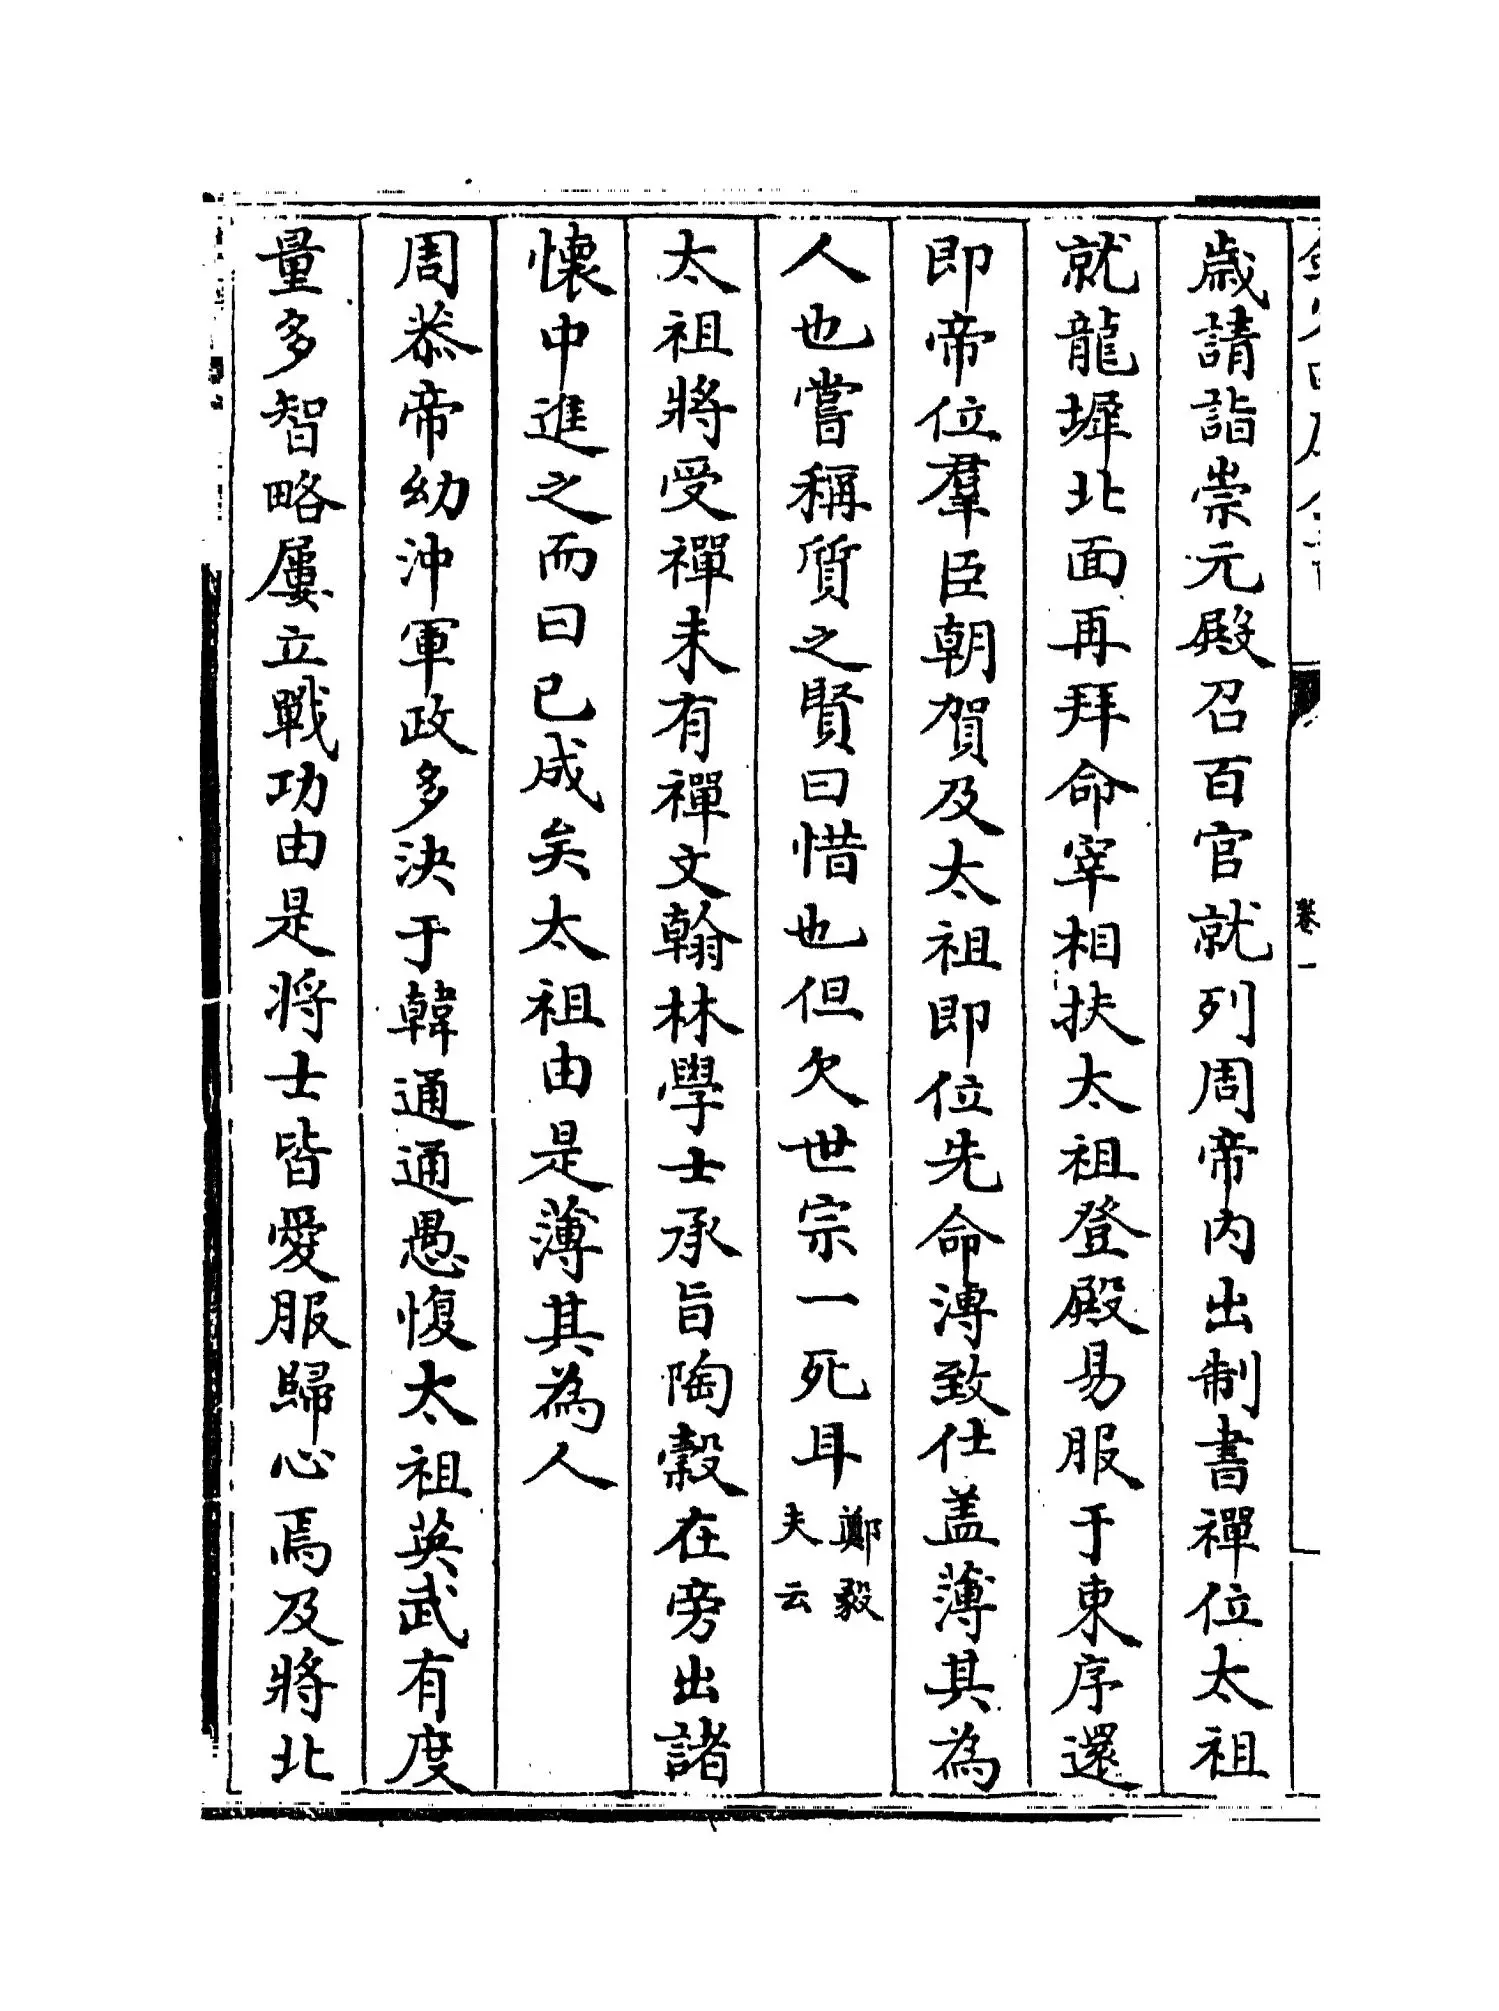 歲請詣崇元殿召百官就列周帝内出制書禪位太祖
就龍墀北面再拜命宰相扶太祖登殿易服于東序還
即帝位羣臣朝賀及太祖即位先命溥致仕盖薄其為
人也嘗稱質之賢曰惜也但欠世宗一死耳鄭毅夫云
太祖將受禪未有禪文翰林學士承旨陶縠在旁出諸
懷中進之而曰已成矣太祖由是薄其為人
周恭帝幼沖軍政多決于韓通通愚愎太祖英武有度
量多智略屢立戰功由是將士皆愛服歸心焉及將北
卷一